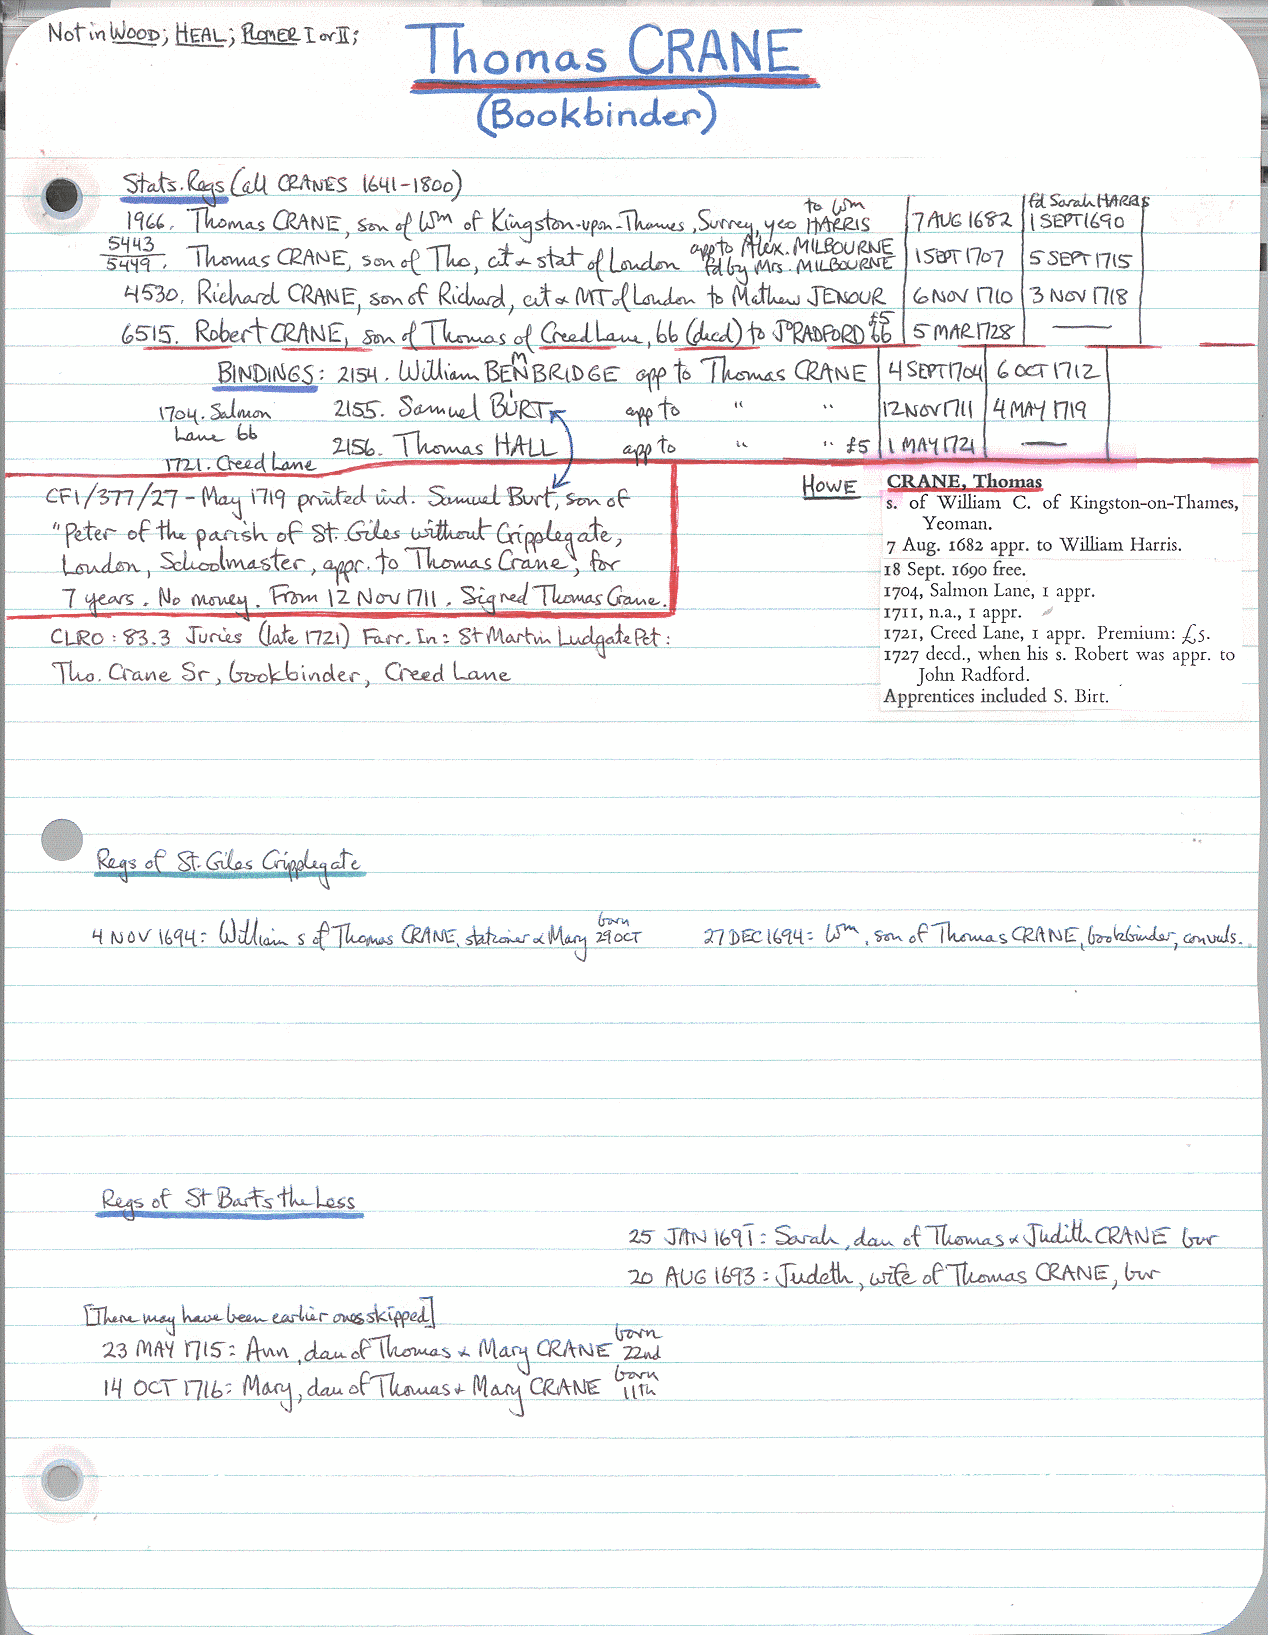 Not in WOOD; HEAL; PLOMER I or II;
Thomas CRANE
(Bookbinder)
Stats. Regs (all CRANES 1641-1800)
1966. Thomas CRANE, son of Wm of Kingston-upon-Thames, Surrey, yeo to Wm HARRIS 7 AUG 1682 fd Sarah HARRIS 1 SEPT 1690
5443/5449. Thomas CRANE, son of Tho, cit & stat of London app to Alex. MILBOURNE fd by Mrs. MILBOURNE 1 SEPT 1707 5 SEPT 1715
4530. Richard CRANE, son of Richard, cit & MT of London to Mathew JENOUR 6 NOV 1710 3 NOV 1718
6515. Robert CRANE, son of Thomas of Creed Lane, bb (decd) to Jo RADFORD bb £5 5 MAR 1728 —
BINDINGS: 2154. William BENMBRIDGE app to Thomas CRANE 4 SEPT 1704 6 OCT 1712
1704. Salmon Lane bb
2155. Samuel BURT app to " " 12 NOV 1711 4 MAY 1719
1721. Creed Lane
2156. Thomas HALL app to " " £5 1 MAY 1721 —
CF1/377/27 - May 1719 printed ind. Samuel Burt, son of
"Peter of the parish of St. Giles without Cripplegate,
London, Schoolmaster, appr. to Thomas Crane, for
7 years. No money. From 12 Nov 1711. Signed Thomas Crane.
CLRO: 83.3 Juries (late 1721) Farr. In: St Martin Ludgate Pct:
Tho. Crane Sr, bookbinder, Creed Lane
HOWE
CRANE, Thomas
s. of William C. of Kingston-on-Thames,
Yeoman.
7 Aug. 1682 appr. to William Harris.
18 Sept. 1690 free.
1704, Salmon Lane, 1 appr.
1711, n.a., 1 appr.
1721, Creed Lane, 1 appr. Premium: £5.
1727 decd., when his s. Robert was appr. to
John Radford.
Apprentices included S. Birt.
Regs of St. Giles Cripplegate
4 NOV 1694: William s of Thomas CRANE, stationer & Mary born 29 OCT
27 DEC 1694: Wm, son of Thomas CRANE, bookbinder, convuls.
Regs of St Barts the Less
25 JAN 1691: Sarah, dau of Thomas & Judith CRANE bur
20 AUG 1693: Judeth, wife of Thomas CRANE, bur
[There may have been earlier ones skipped]
23 MAY 1715: Ann, dau of Thomas & Mary CRANE born 22nd
14 OCT 1716: Mary, dau of Thomas & Mary CRANE born 11th